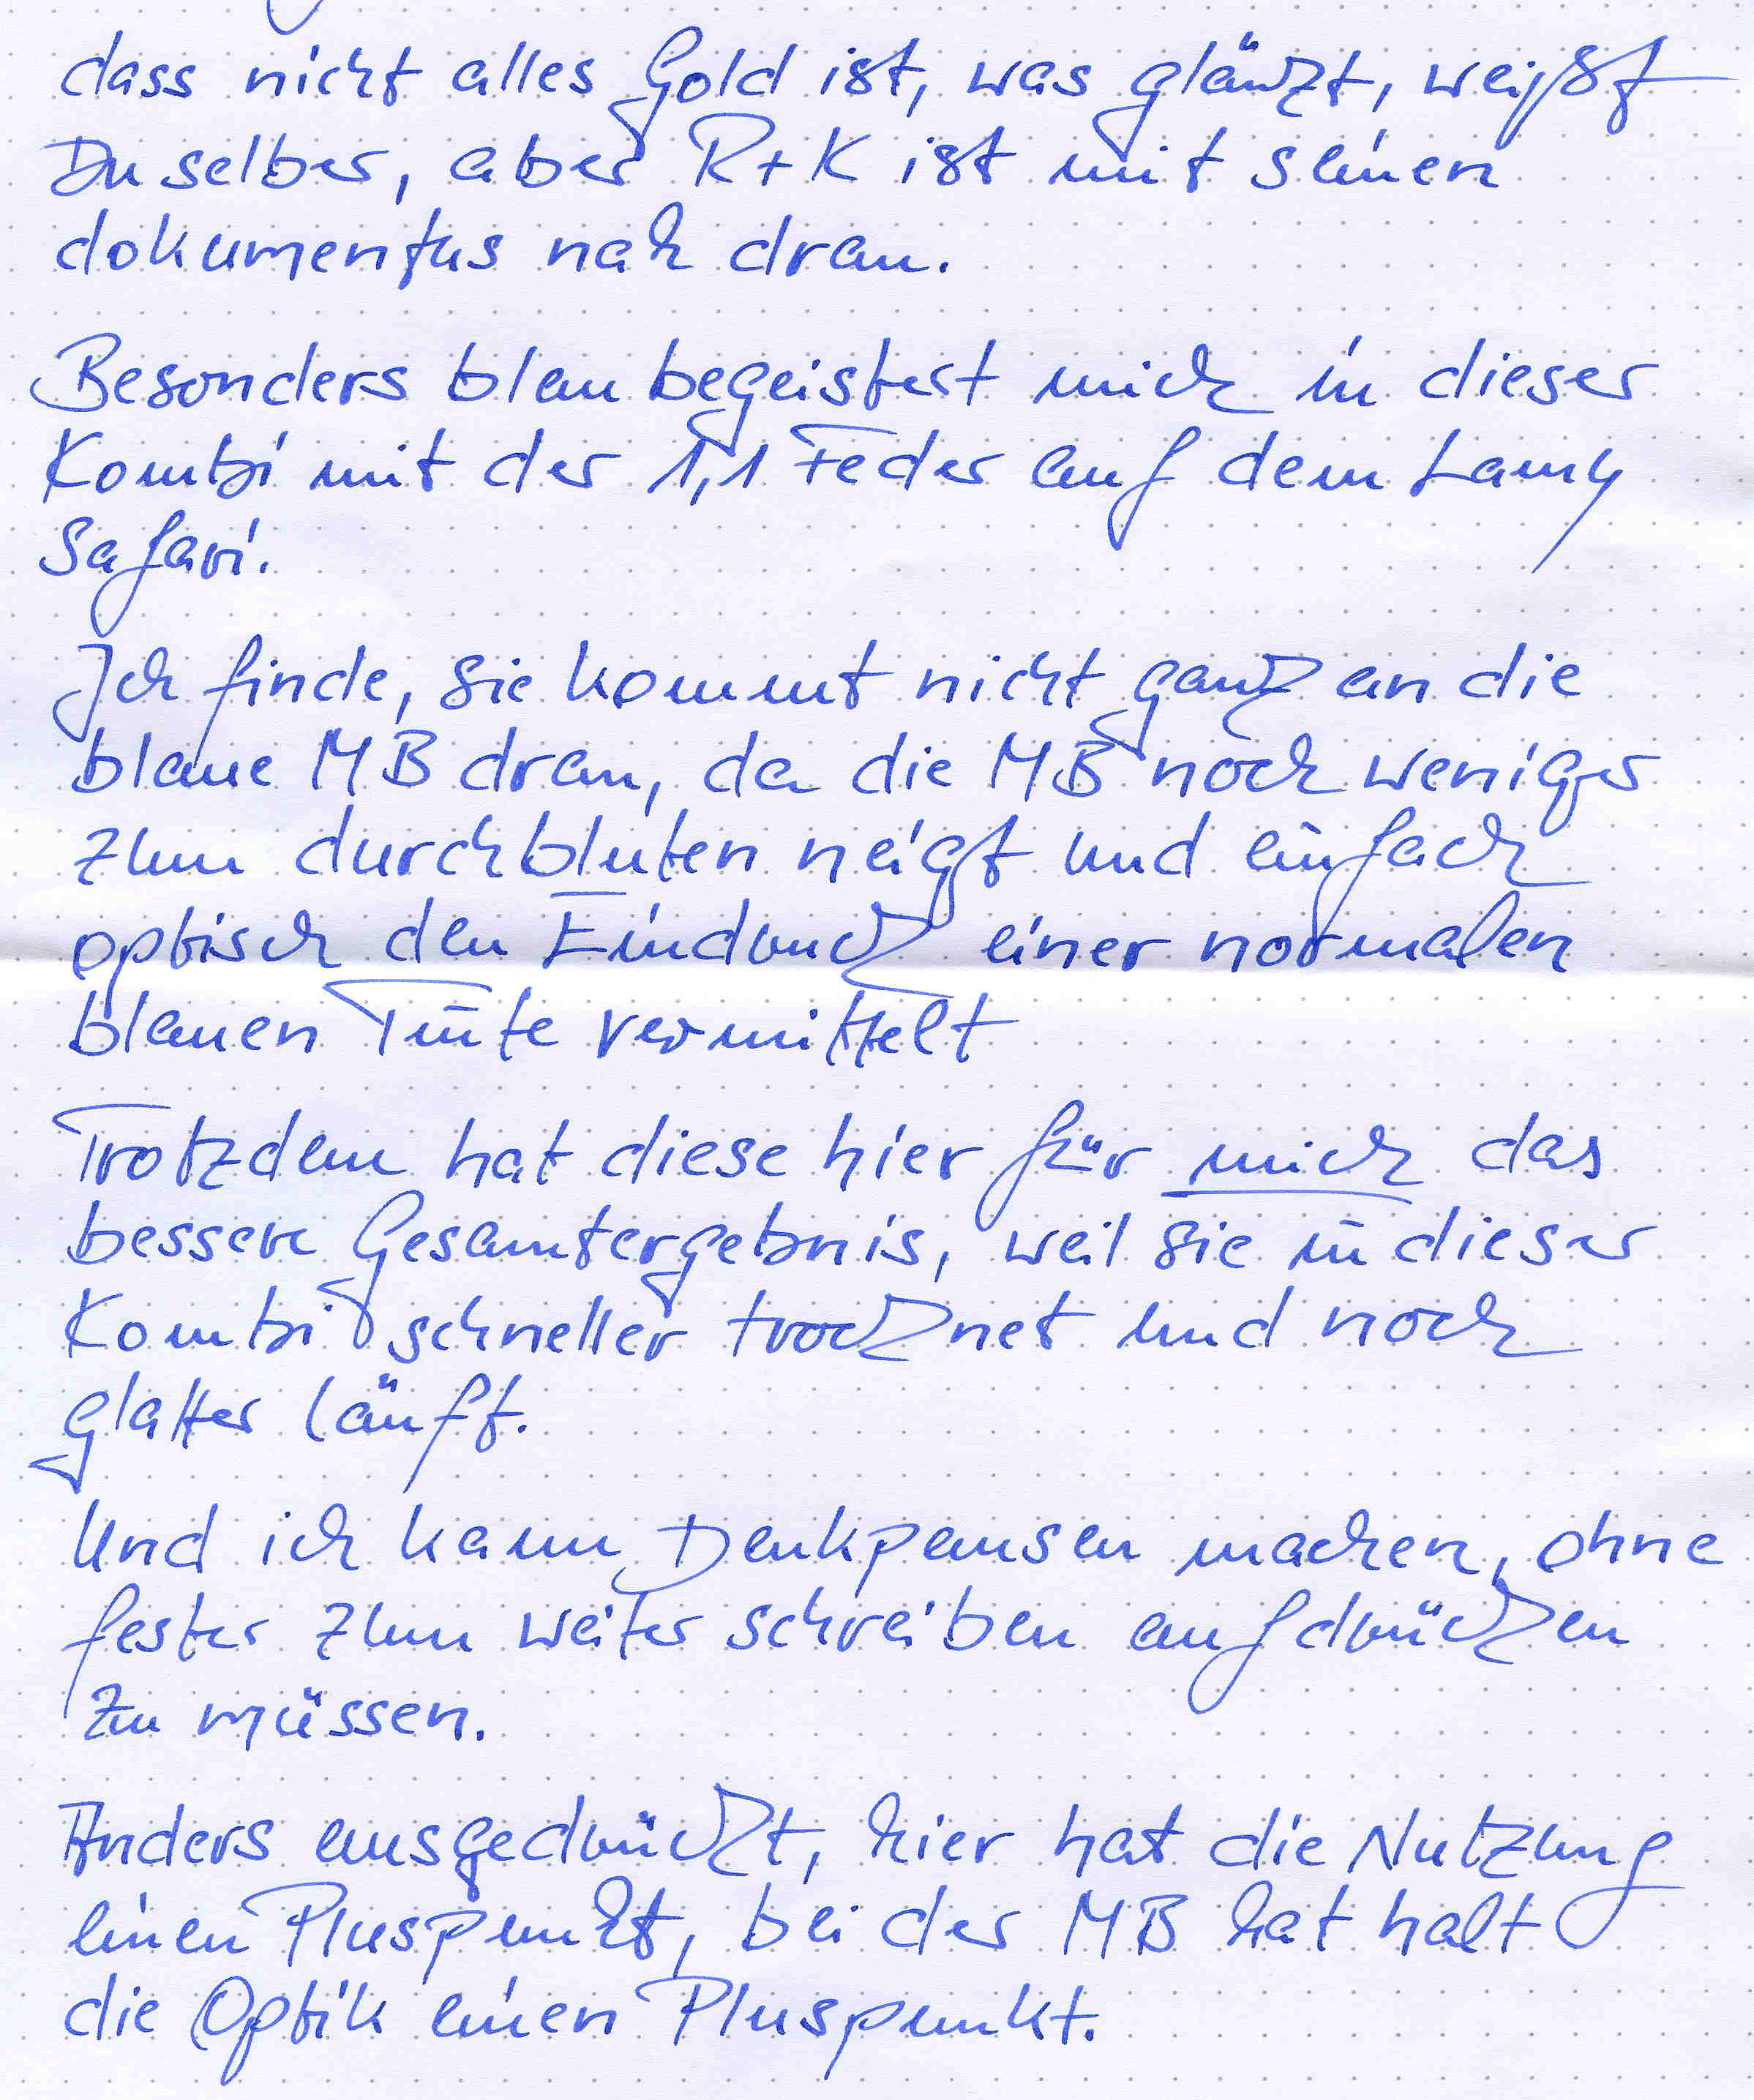 dass nicht alles Gold ist, was glänzt, weißt
Du selber, aber R+K ist mit seinen
dokumentus nah dran.
Besonders blau begeistert mich in dieser
Kombi mit der 1,1 Feder auf dem Lamy
Safari.
Ich finde, sie kommt nicht ganz an die
blaue MB dran, da die MB noch weniger
zum durchbluten neigt und einfach
optisch den Eindruck einer normalen
blauen Tinte vermittelt
Trotzdem hat diese hier für mich das
bessere Gesamtergebnis, weil sie in dieser
Kombi schneller trocknet und noch
glatter läuft.
Und ich kann Denkpausen machen, ohne
fester zum weiter schreiben aufdrücken
zu müssen.
Anders ausgedrückt, hier hat die Nutzung
einen Pluspunkt, bei der MB hat halt
die Optik einen Pluspunkt.